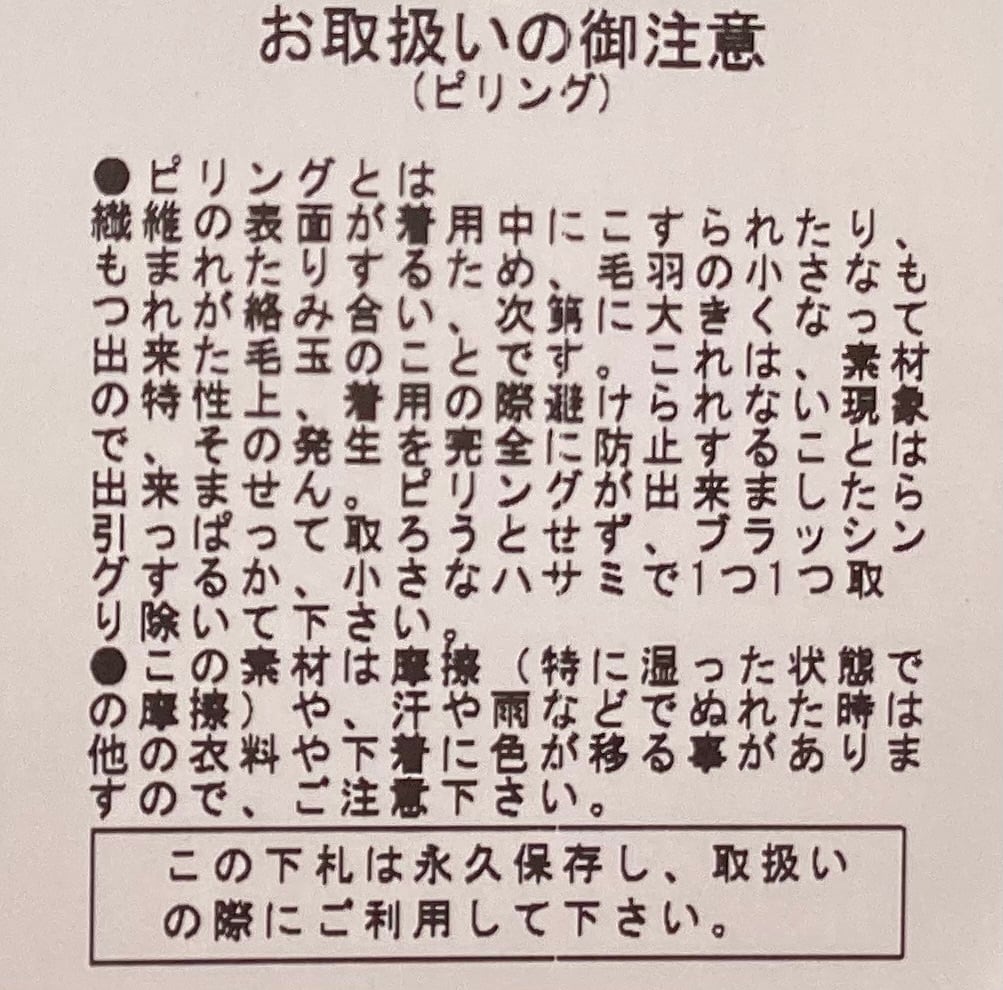 お取扱いの御注意
(ピリング)
●ピリングとは
繊維の表面が着用中にこすられたり、
もまれたりするため、毛羽の小さなも
つれが絡み合い、次第に大きくなって
出来た毛玉のことです。これは、素材
の特性上、着用の際避けられない現象
で、その発生を完全に防止することは
出来ません。ピリングが出来ましたら
引っぱって取ろうとせず、ブラッシン
グするか、小さなハサミで1つ1つ取
り除いて下さい。
●この素材は摩擦(特に湿った状態で
の摩擦)や、汗や雨などでぬれた時は
他の衣料や下着に色が移る事がありま
すので、ご注意下さい。
この下札は永久保存し、取扱い
の際にご利用して下さい。